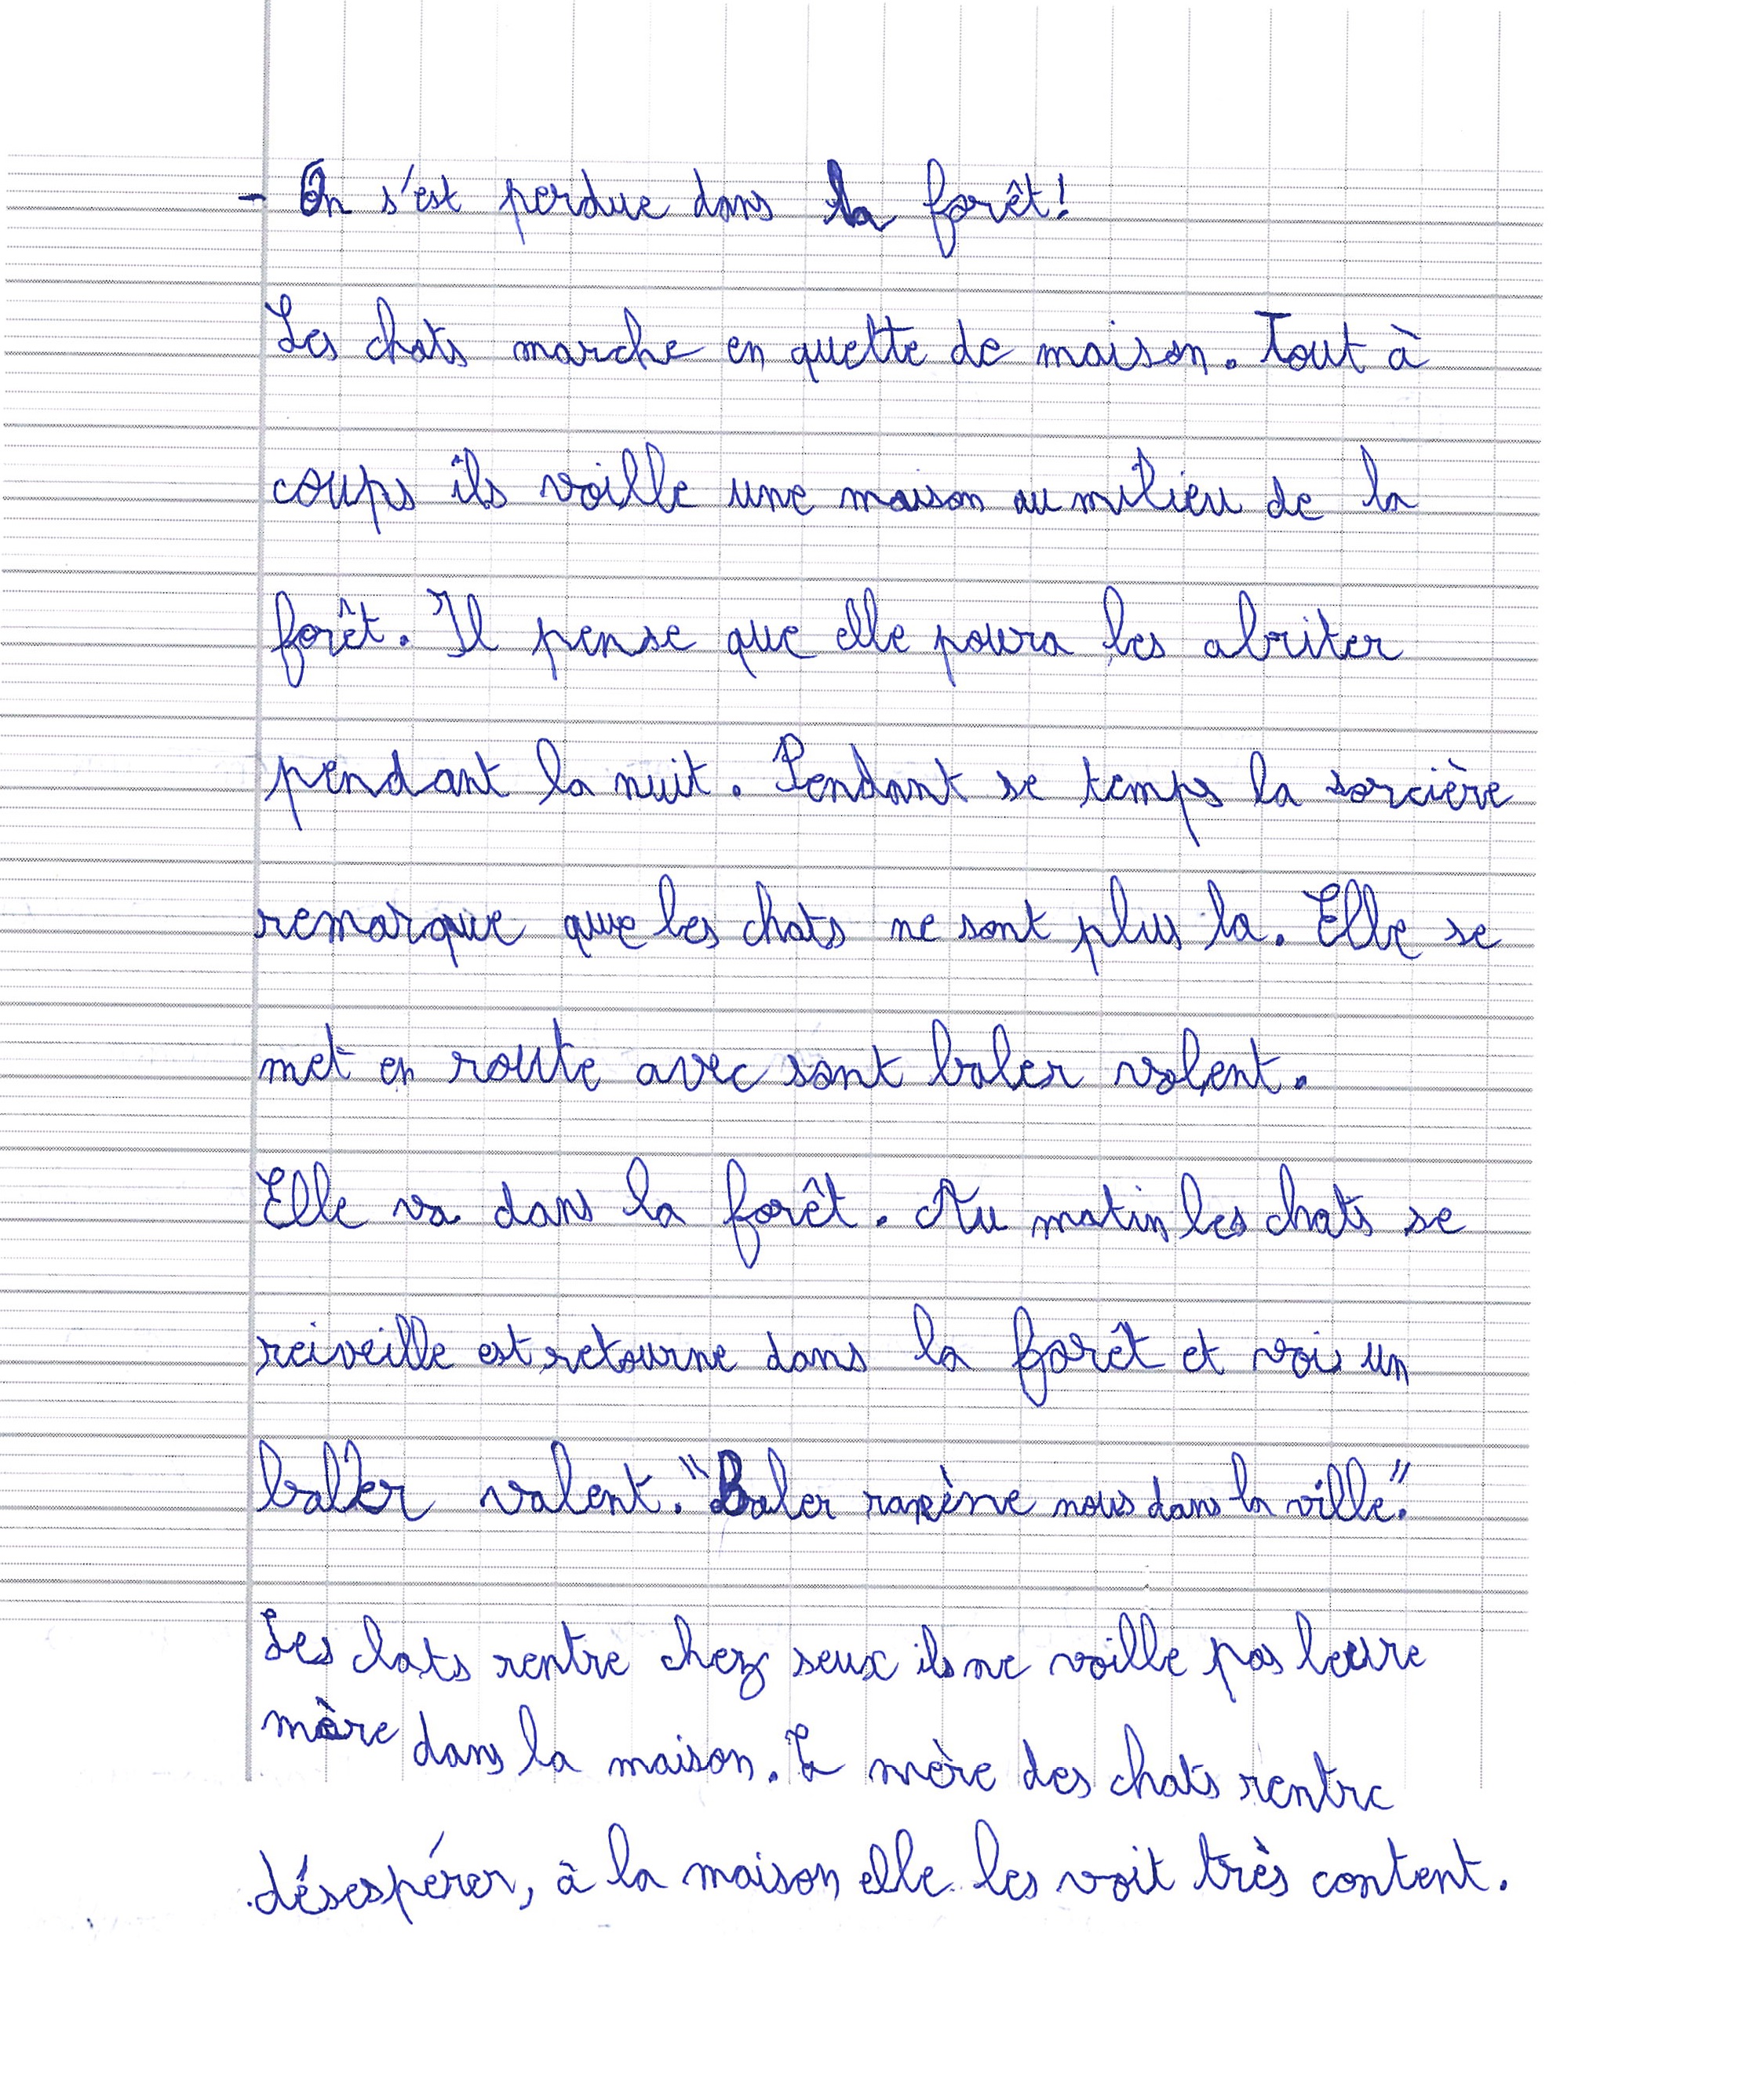 - On s'est perdue dans la forêt!
Les chats marche en quette de maison. Tout à
coups ils voille une maison au milieu de la
forêt. Il pense que elle poura les abriter
pendant la nuit. Pendant se temps la sorcière
remarque que les chats ne sont plus la. Elle se
met en route avec sont baler volent.
Elle va dans la forêt. Au matin les chats se
reiveille est retourne dans la forêt et voi un
baler valent. "Baler ramène nous dans la ville."
Les chats rentre chez seux ils ne voille pas leure
mère dans la maison. La mère des chats rentre
désespérer, à la maison elle les voit très content.